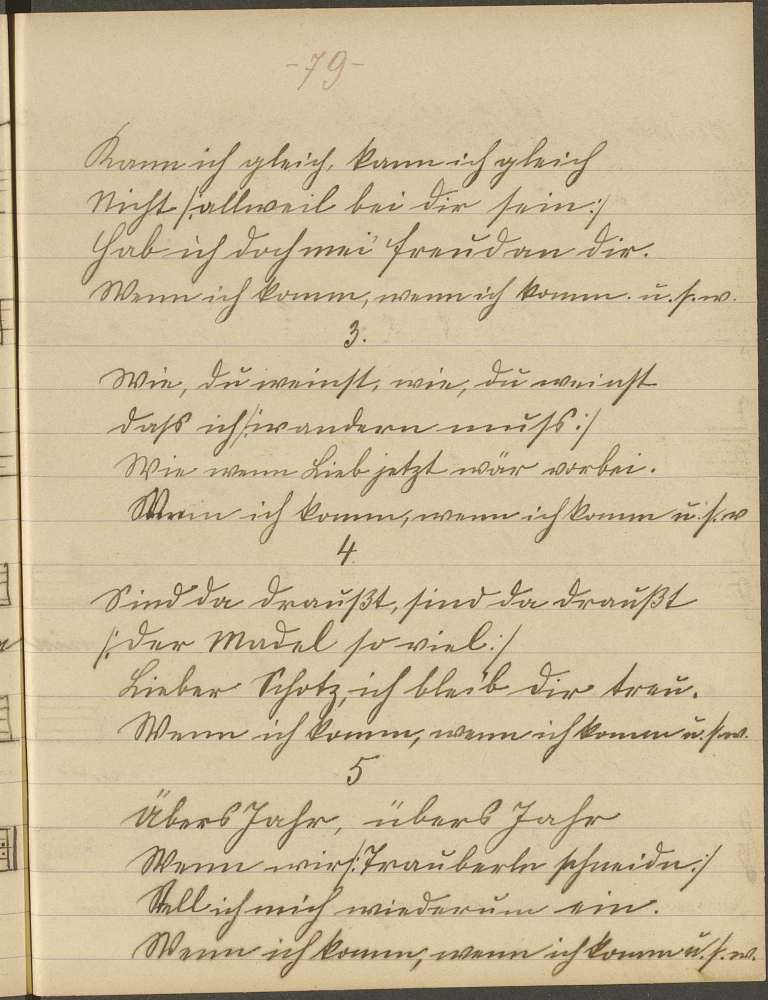 -79-
Kann ich gleich, kann ich gleich
Nicht /:allweil bei dir sein:/
Hab ich doch mei' Freud an dir.
Wenn ich komm, wenn ich komm. u.s.w.
3.
Wie, du weinst, wie, du weinst
dass ich/:wandern muss:/
Wie wenn Lieb jetzt wär vorbei.
Wenn ich komm, wenn ich komm u.s.w
4.
Sind da draußt, sind da draußt
/:der Madel so viel:/
Lieber Schatz, ich bleib dir treu.
Wenn ich komm, wenn ich komm u.s.w.
5
Übers Jahr, übers Jahr
Wenn wir/:Trauberln schneidn:/
Stell ich mich wiederum ein.
Wenn ich komm, wenn ich komm u.s.w.